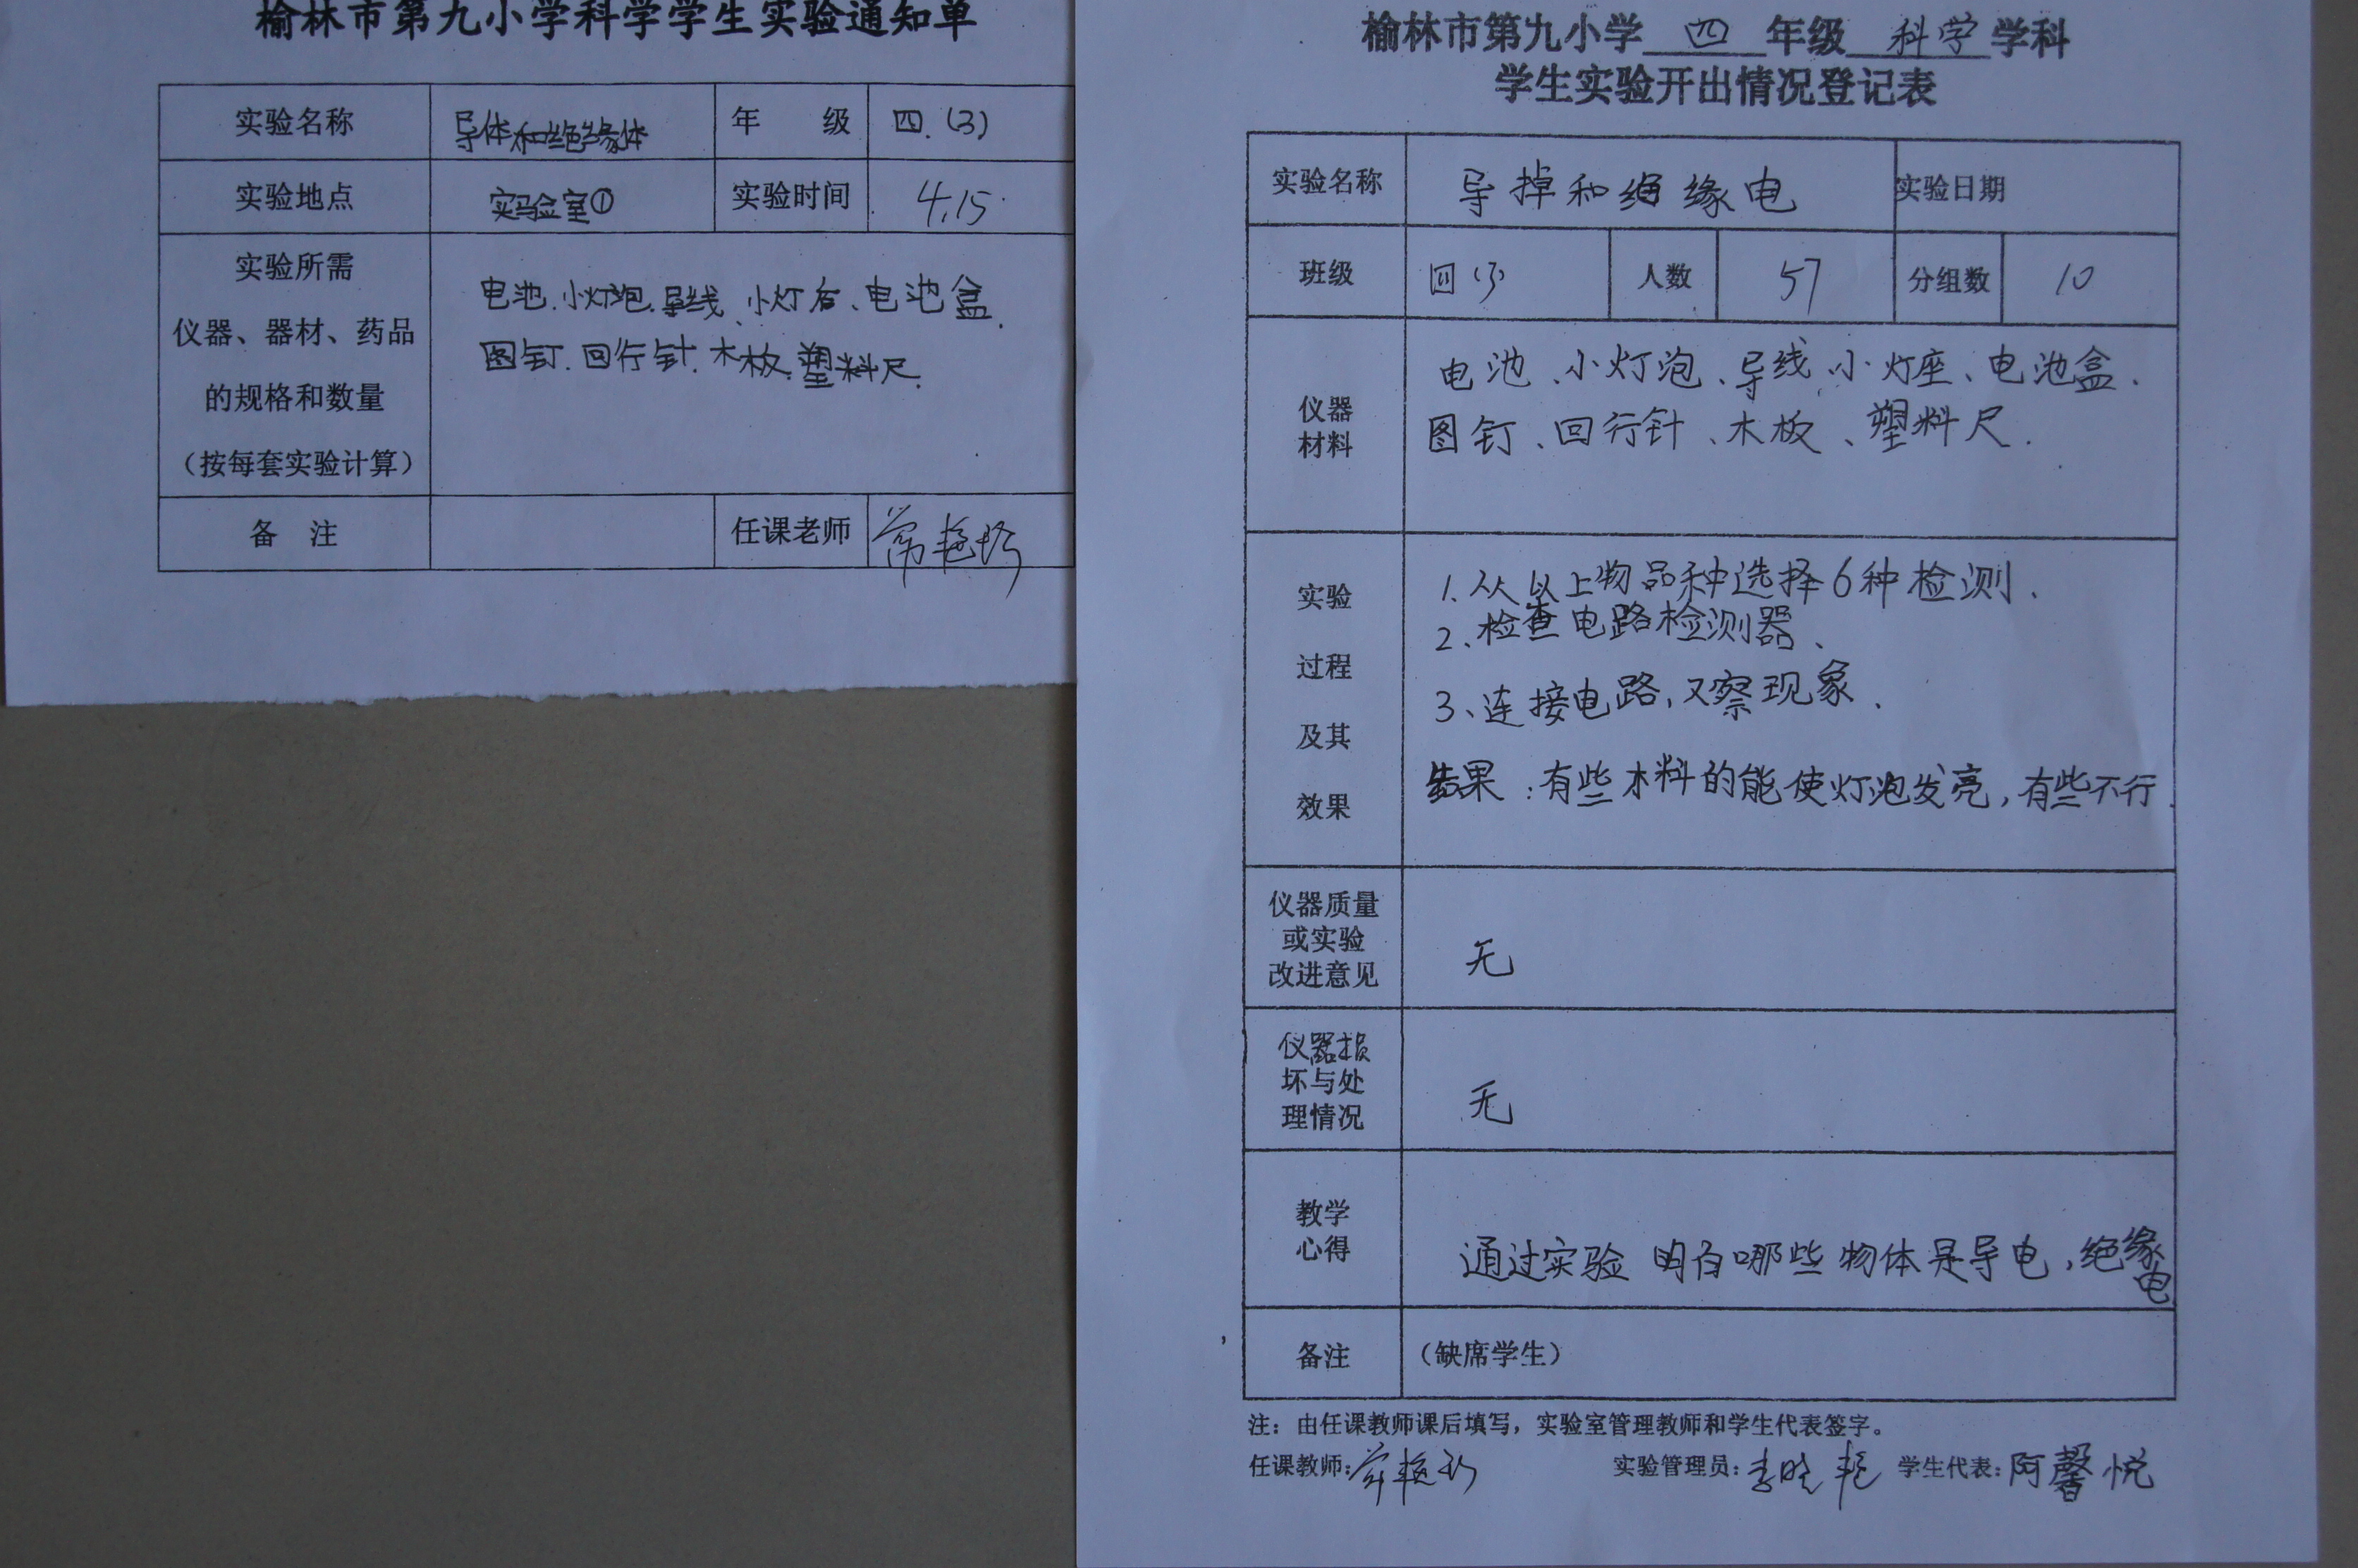 榆林市第九小学科学学生实验通知单
实验名称 导体和绝缘体 年 级 四.(3)
实验地点 实验室① 实验时间 4.15
实验所需
仪器、器材、药品
的规格和数量
(按每套实验计算)
电池.小灯泡.导线、小灯台、电池盒.
图钉.回行针.木板.塑料尺.
备 注 任课老师
榆林市第九小学四年级科学学科
学生实验开出情况登记表
实验名称 导掉和绝缘电 实验日期
班级 四(3) 人数 57 分组数 10
仪器
材料
电池、小灯泡、导线、小灯座、电池盒.
图钉、回行针、木板、塑料尺.
实验
过程
及其
效果
1.从以上物品种选择6种检测.
2、检查电路检测器、
3、连接电路,又察现象.
结果:有些木料的能使灯泡发亮,有些不行.
仪器质量
或实验
改进意见
无
仪器损
坏与处
理情况
无
教学
心得
通过实验 明白哪些物体是导电,绝缘
电
备注 (缺席学生)
注:由任课教师课后填写,实验室管理教师和学生代表签字。
任课教师: 实验管理员:李晓艳 学生代表:阿馨悦